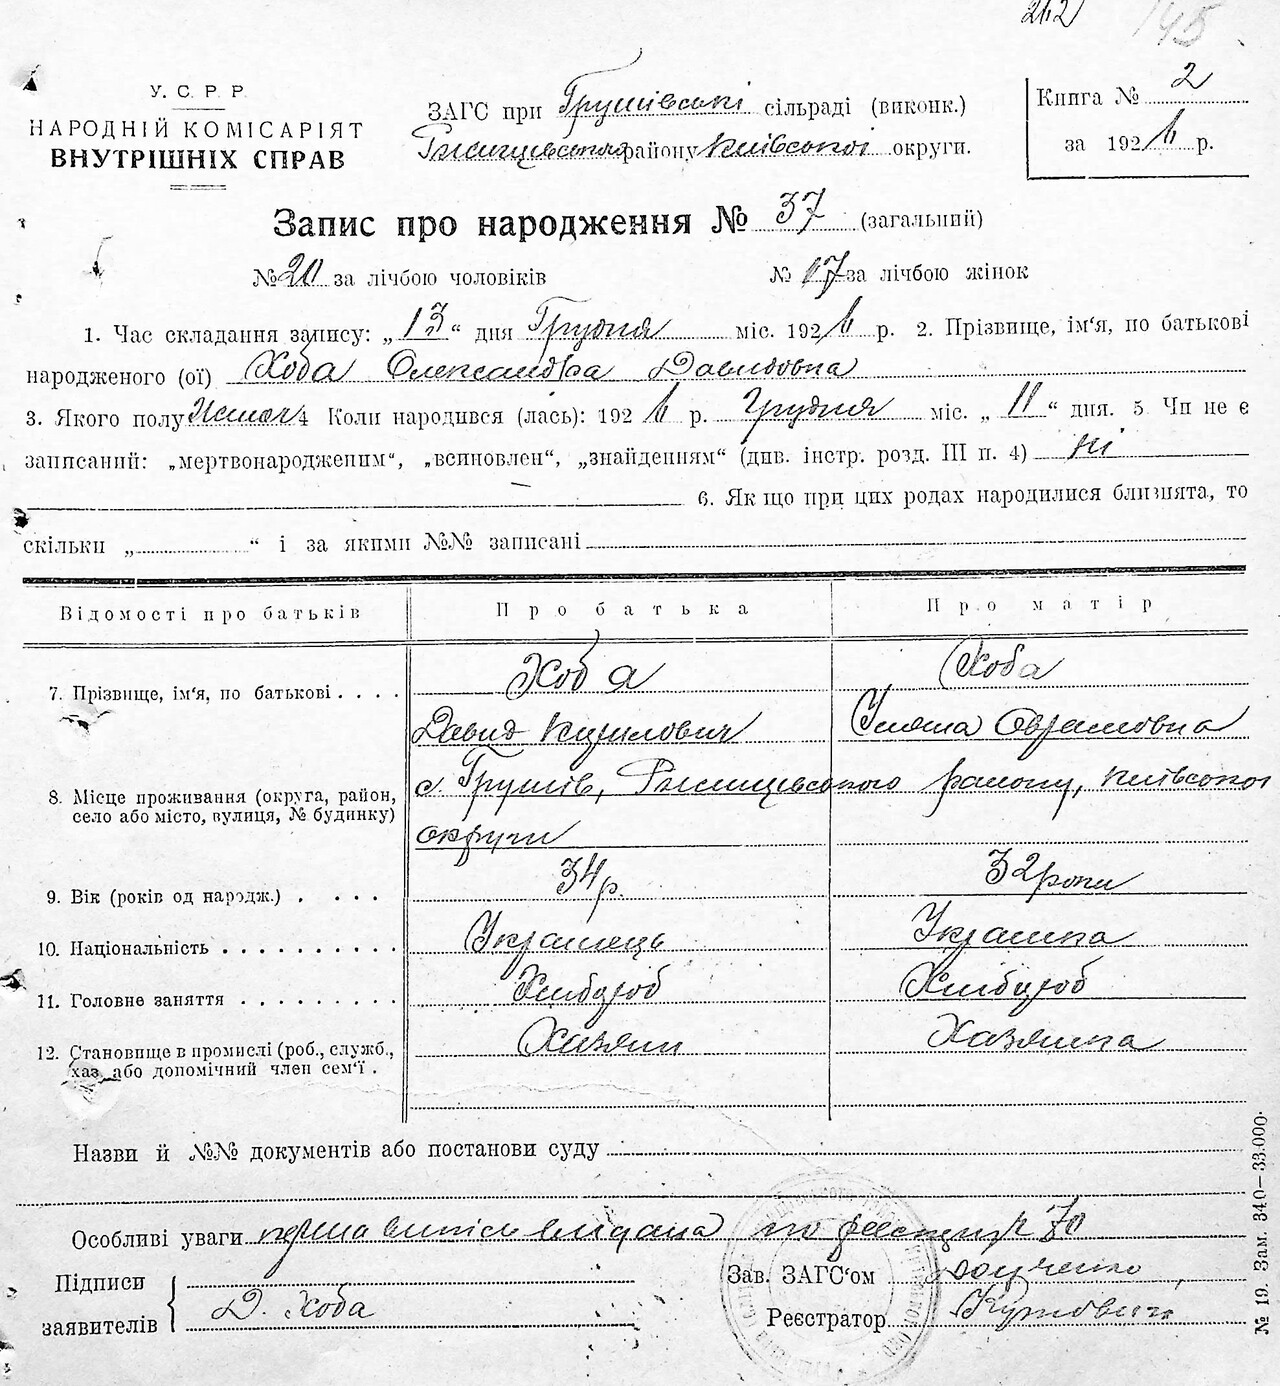 262 145
У. С. Р. Р.
НАРОДНІЙ КОМІСАРІЯТ
ВНУТРІШНІХ СПРАВ
ЗАГС при Грушівські сільраді (виконк.)
Ржищівського району Київської округи.
Книга № 2
за 1926 р.
Запис про народження № 37 (загальний)
№ 20 за лічбою чоловіків № 17 за лічбою жінок
1. Час складання запису: „13“ дня Грудня міс. 1926 р. 2. Прізвище, ім'я, по батькові
народженого (ої) Хоба Олександра Давидовна
3. Якого полу Жіноч 4 Коли народився (лась): 1926 р. Грудня міс. „11“ дня. 5 Чи не є
записаний: „мертвонародженим“, „всиновлен“, „знайденням“ (див. інстр. розд. III п. 4) ні
6. Якщо при цих родах народилися близнята, то
скільки „ “ і за якими №№ записані
Відомості про батьків Про батька Про матір
7. Прізвище, ім'я, по батькові . . . . Хоба Хоба
Давид Кирилович Уляна Оврамовна
8. Місце проживання (округа, район,
село або місто, вулиця, № будинку)
с. Грушів, Ржищівського району, Київської
округи
9. Вік (років од народж.) . . . . 34 р. 32 роки
10. Національність . . . . . . . . . . Українець Українка
11. Головне заняття . . . . . . . . . Хлібороб Хлібороб
12. Становище в промислі (роб., служб.,
хаз. або допомічний член сем'ї .
Хазяін Хазяйка
Назви й №№ документів або постанови суду
Особливі уваги перша випісь видана по реєстру № 70
Підписи
заявителів
Д. Хоба
Зав. ЗАГС'ом
Реєстратор
№ 19. Зам. 340—33.000.